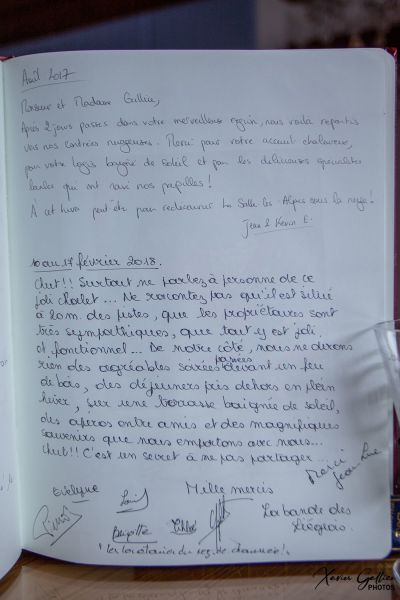 Avril 2017
Monsieur et Madame Gallice,
Après 2 jours passés dans votre merveilleuse région, nous voilà repartis
vers nos contrées nuageuses. Merci pour votre accueil chaleureux,
pour votre logis baigné de soleil et pour les délicieuses spécialités
locales qui ont ravi nos papilles !
À cet hiver peut-être pour redécouvrir La Salle-les-Alpes sous la neige !
Jean & Kevin E.
10 au 17 février 2018.
Chut!! Surtout ne parlez à personne de ce
joli chalet... Ne racontez pas qu'il est situé
à 20 m. des pistes, que les propriétaires sont
très sympathiques, que tout y est joli
et fonctionnel... De notre côté, nous ne dirons
rien des agréables soirées passées devant un feu
de bois, des déjeuners pris dehors en plein
hiver, sur une terrasse baignée de soleil,
des apéros entre amis et des magnifiques
souvenirs que nous emportons avec nous...
Chut!! C'est un secret à ne pas partager...
Merci
Jean-Luc
Evelyne
Mille mercis
La bande des
Liégeois.
Brigitte
Chloé
"Les locataires du rez de chaussée!"
Xavier Gallice
PHOTOS